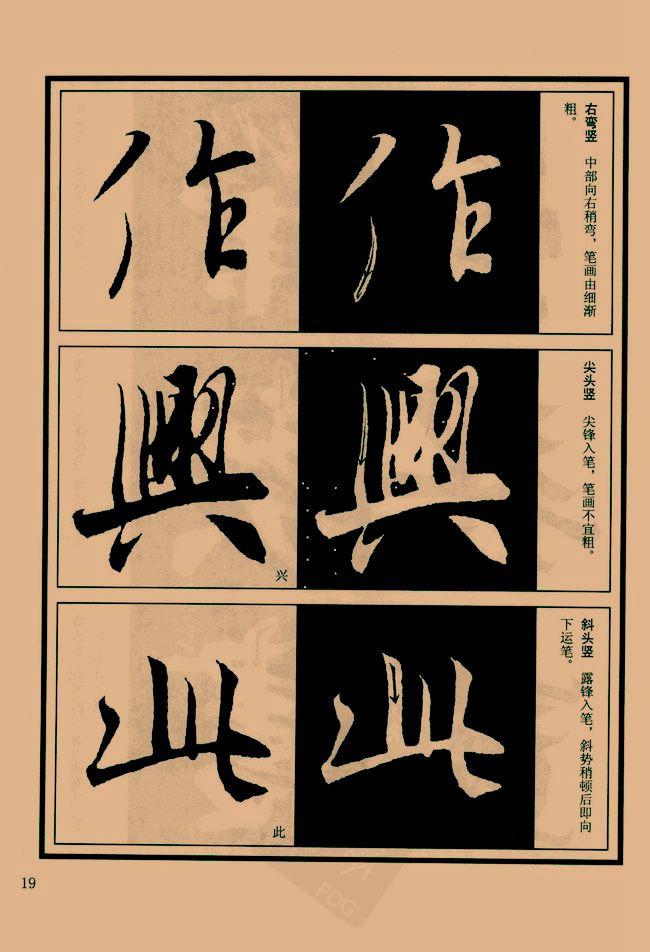 右弯竖 中部向右稍弯，笔画由细渐
粗。
作
作
尖头竖 尖锋入笔，笔画不宜粗。
興
興
兴
斜头竖 露锋入笔，斜势稍顿后即向
下运笔。
此
此
此
19
PDG